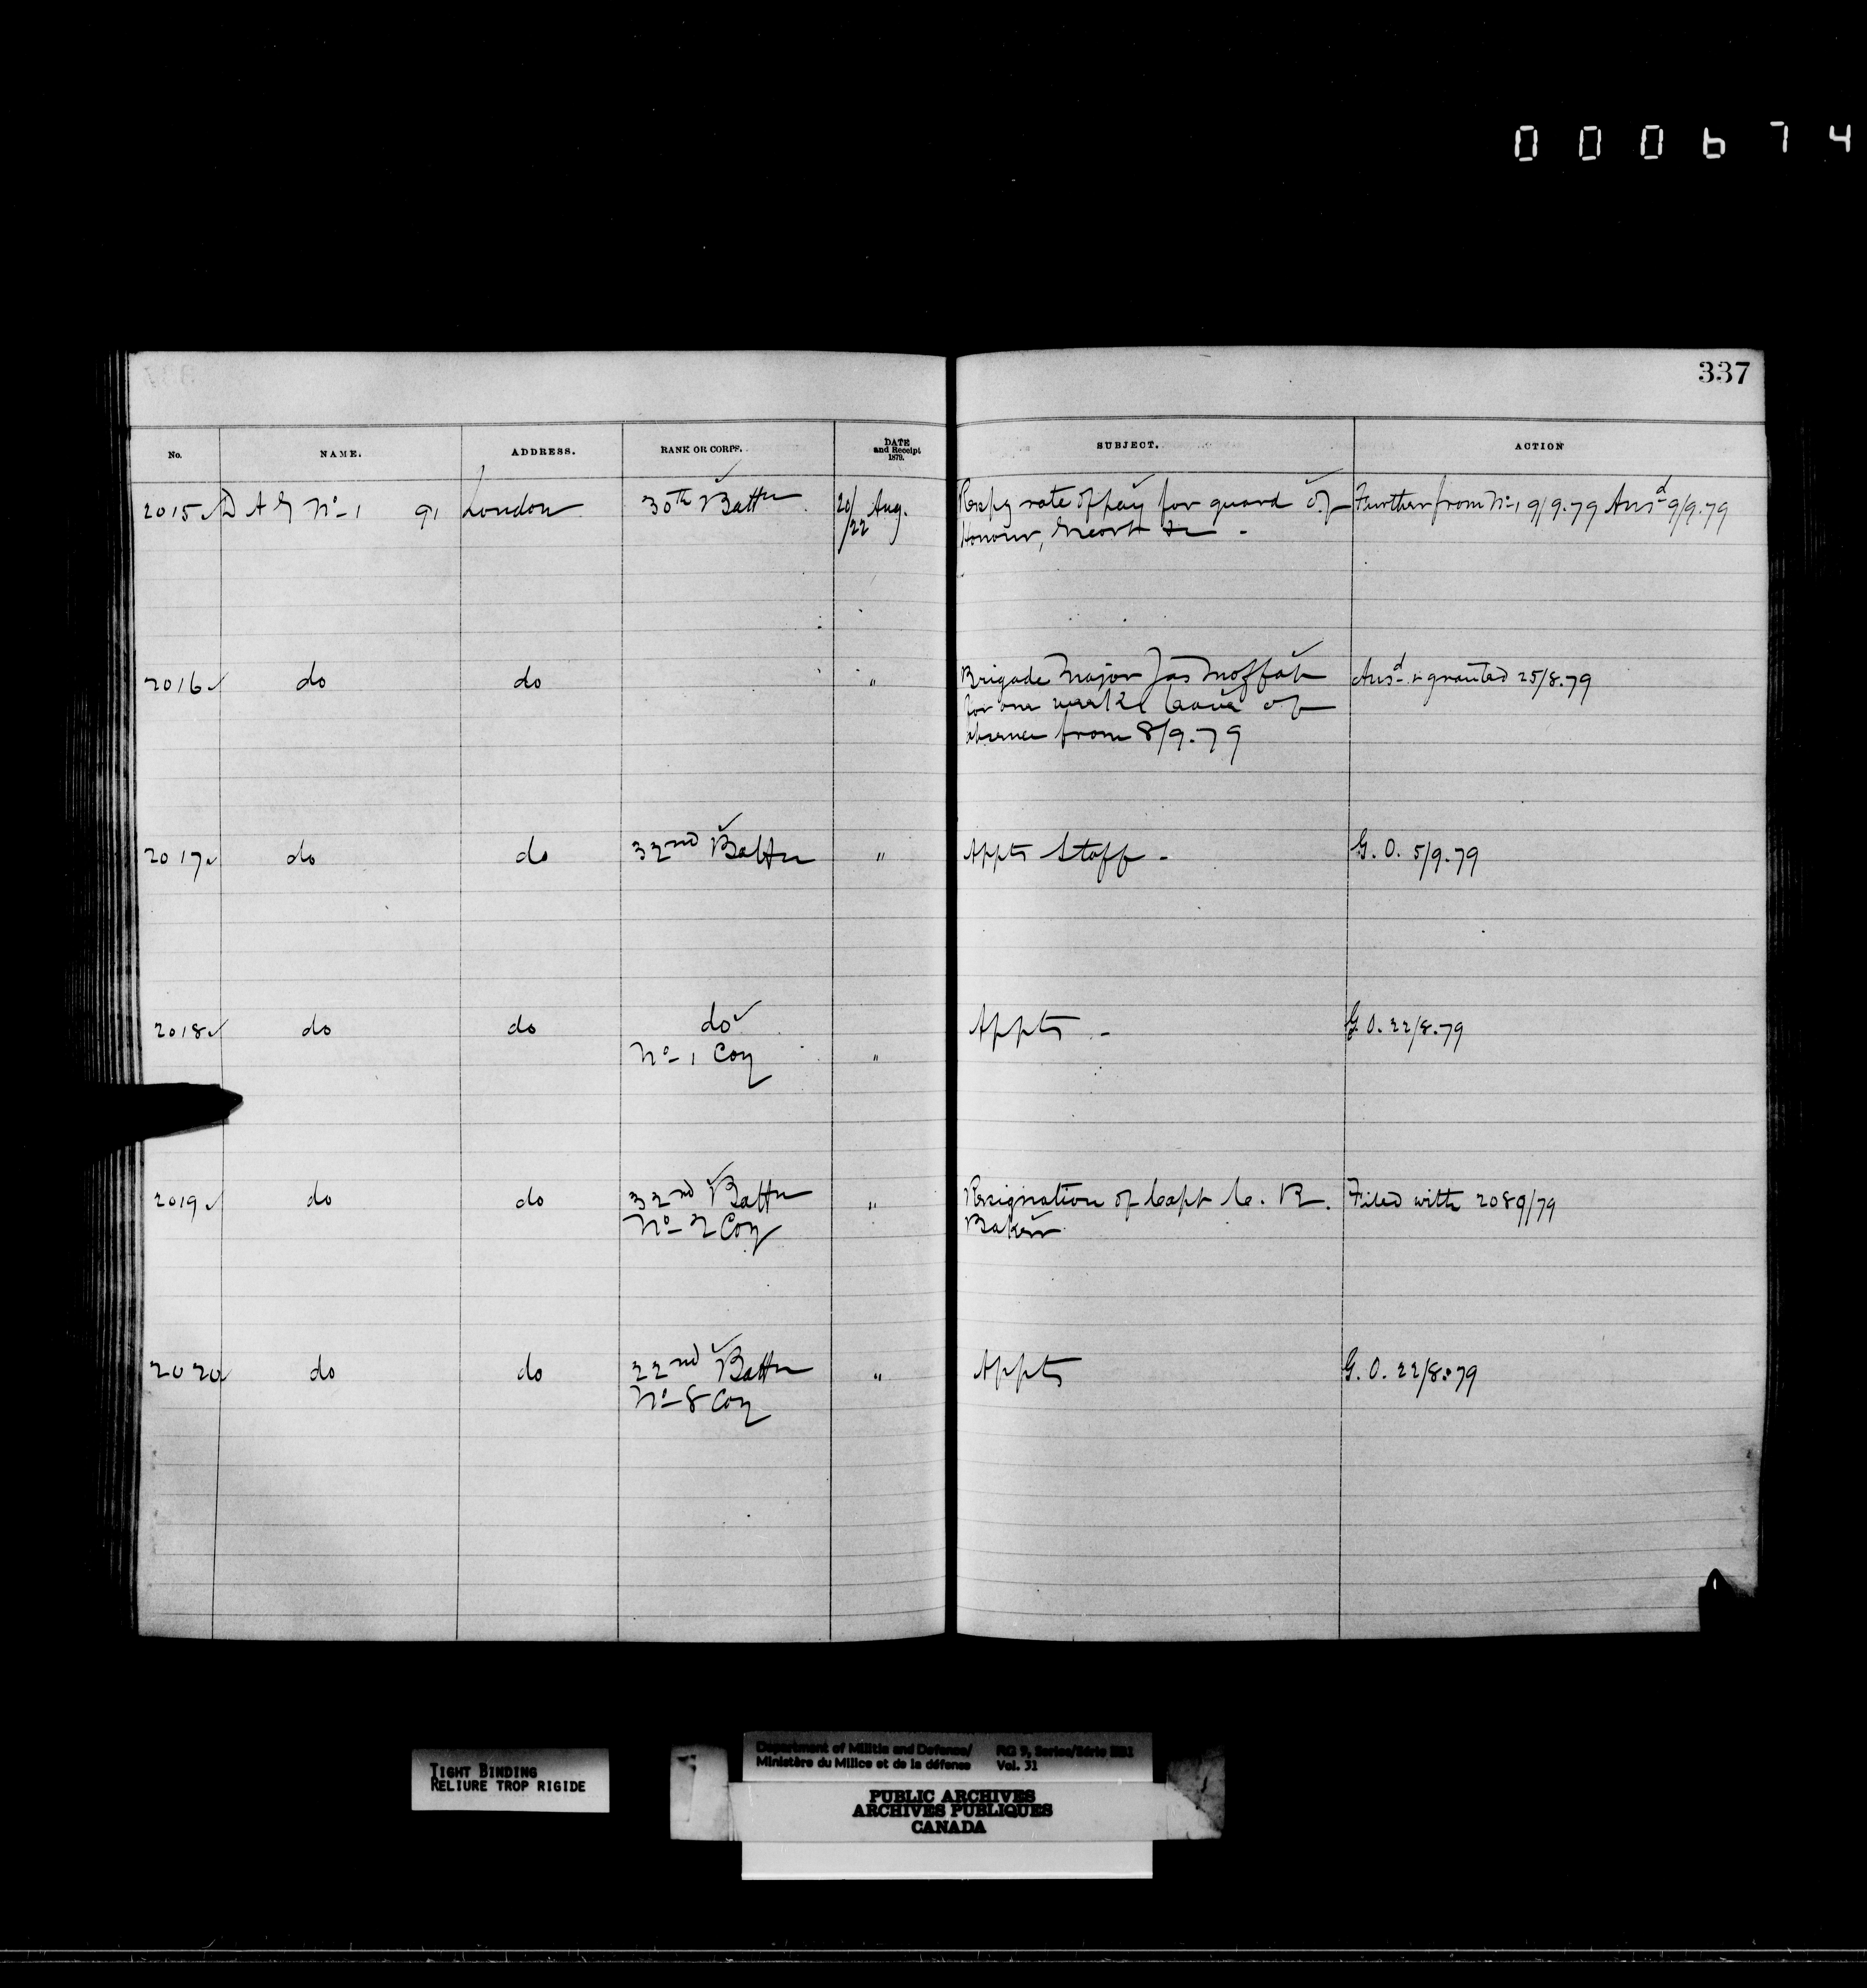 000674
337
No. NAME. ADDRESS. RANK OR CORPS. DATE and Receipt 1879. SUBJECT. ACTION
2015 D A G No 1 91 London 30th Battn 20/22 Aug. rate of pay for guard of Further from No 1 9/9.79 Ansd 9/9.79
Honour, Escort &c -
2016 do do " Brigade Major Jas Moffat Ansd & granted 25/8.79
for one weeks leave of
absence from 8/9.79
2017 do do 32nd Battn " Appts Staff - G. O. 5/9.79
2018 do do do Appts - G. O. 22/8.79
No 1 Coy "
2019 do do 32nd Battn " Resignation of Capt C. R. Filed with 2089/79
No 2 Coy Baker
2020 do do 22nd Battn " Appts G. O. 22/8.79
No 8 Coy
TIGHT BINDING
RELIURE TROP RIGIDE
Department of Militia and Defence/ RG 9, Series/Série
Ministère du Milice et de la défense Vol. 31
PUBLIC ARCHIVES
ARCHIVES PUBLIQUES
CANADA